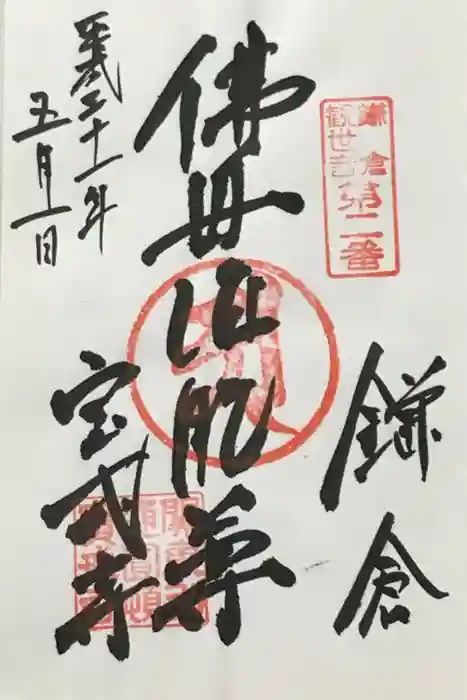 鎌倉
観世音
第二番
鎌倉
佛母准胝尊
宝戒寺
平成二十一年
五月一日